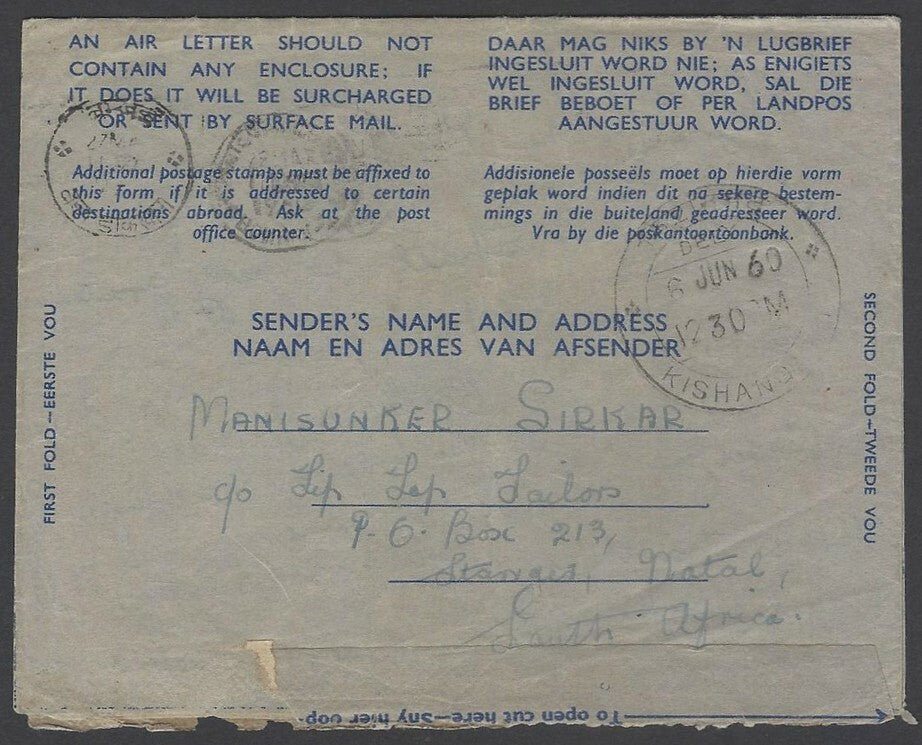 AN AIR LETTER SHOULD NOT
CONTAIN ANY ENCLOSURE; IF
IT DOES IT WILL BE SURCHARGED
OR SENT BY SURFACE MAIL.
Additional postage stamps must be affixed to
this form if it is addressed to certain
destinations abroad. Ask at the post
office counter.
DAAR MAG NIKS BY 'N LUGBRIEF
INGESLUIT WORD NIE; AS ENIGIETS
WEL INGESLUIT WORD, SAL DIE
BRIEF BEBOET OF PER LANDPOS
AANGESTUUR WORD.
Addisionele posseëls moet op hierdie vorm
geplak word indien dit na sekere bestem-
mings in die buiteland geadresseer word.
Vra by die poskantoortoonbank.
6 JUN 60
12 30 PM
KISHANG
SENDER'S NAME AND ADDRESS
NAAM EN ADRES VAN AFSENDER
FIRST FOLD—EERSTE VOU
SECOND FOLD—TWEEDE VOU
MANISUNKER SIRKAR
c/o Tip Top Tailors
P. O. Box 213,
Stanger, Natal,
South Africa.
To open cut here—Sny hier oop